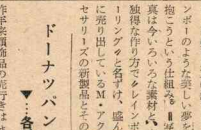 ンボーのような美しい夢を
抱こうという仕組み。
真は今いろいろな素材と、
独得な作り方でレインボ
ーリングと名ずけ、盛ん
に売り出しているM・アク
セサリーズの新製品とその
ドーナツパン
▼…各